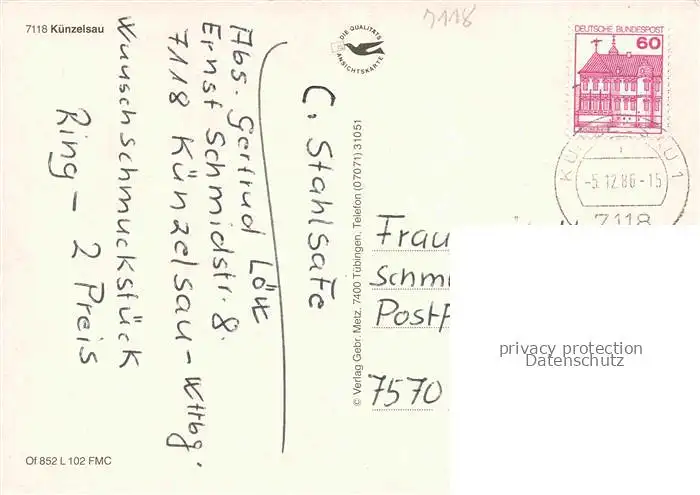 7118 Künzelsau
7118
DIE QUALITÄTS
ANSICHTSKARTE
DEUTSCHE BUNDESPOST
60
1
-5.12.86-15
7118
Abs. Gertrud
Ernst Schmidstr. 8.
7118 Künzelsau - Wttbg.
Wunschschmuckstück
Ring - 2 Preis
C. Stahlsafe
© Verlag Gebr. Metz, 7400 Tübingen, Telefon (07071) 31051
Frau
Schm
Postf
7570
privacy protection
Datenschutz
Of 852 L 102 FMC